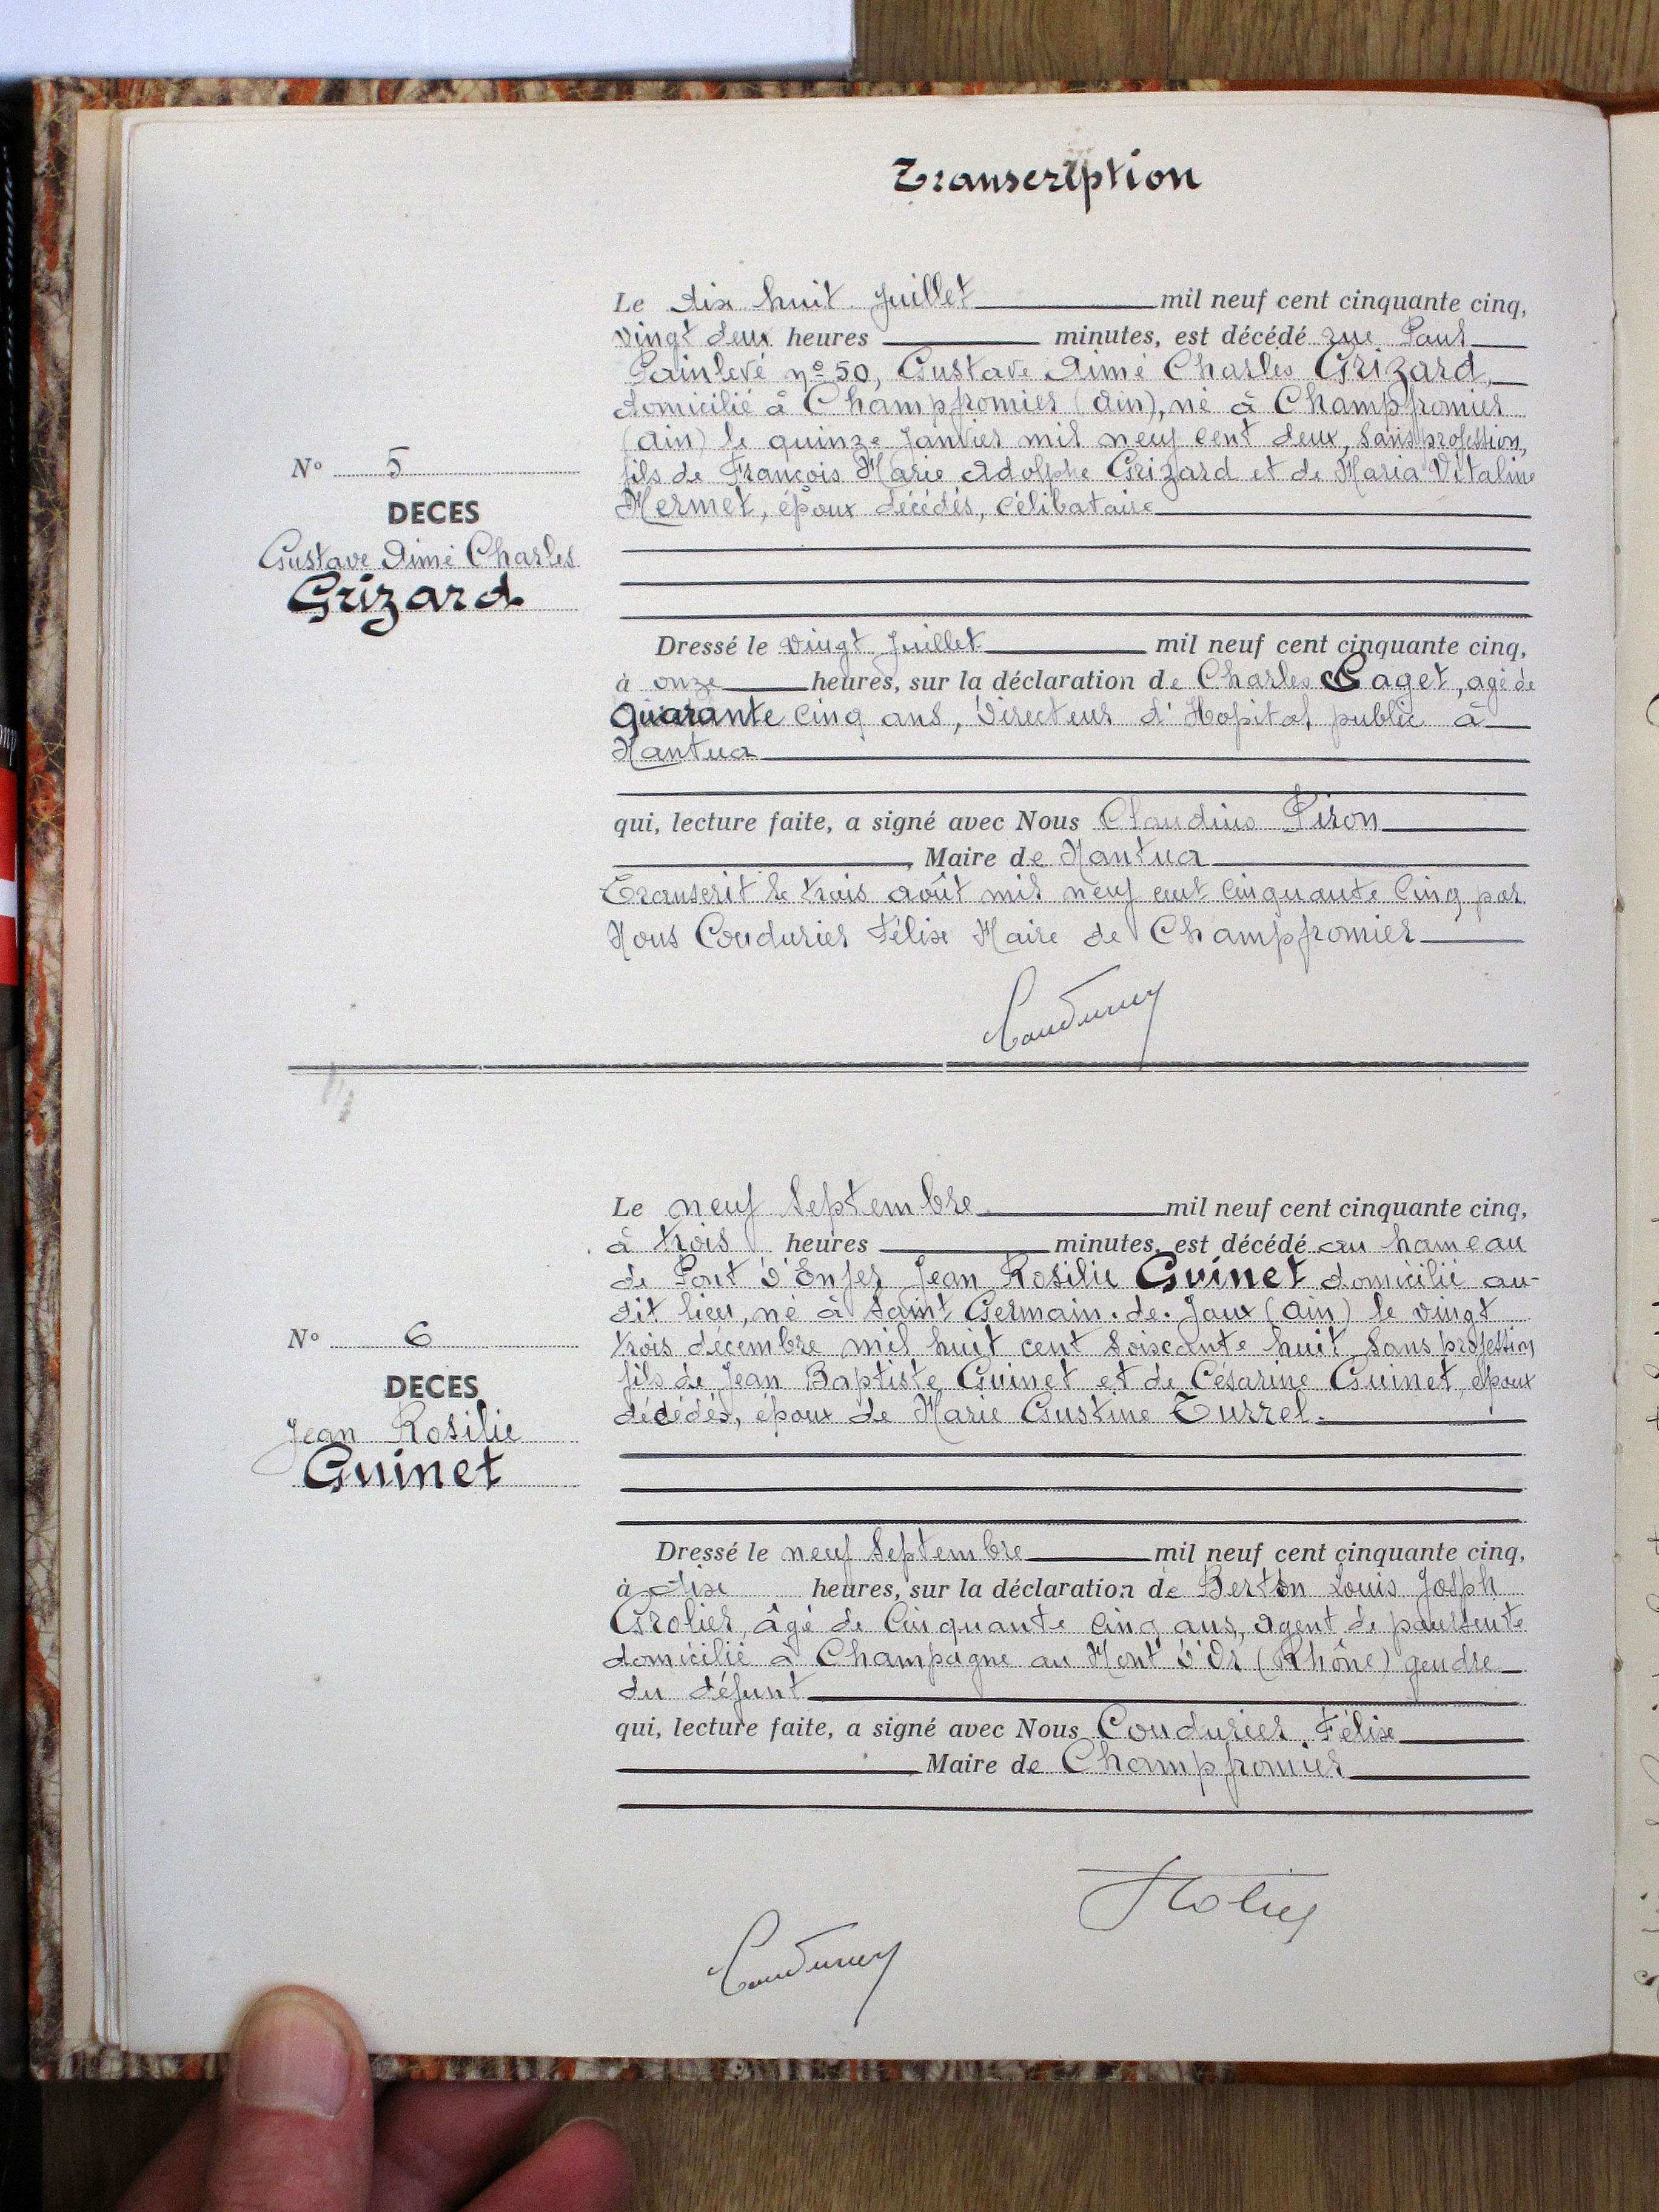 Transcription
Le dix huit juillet mil neuf cent cinquante cinq,
vingt deux heures minutes, est décédé rue Paul
Painlevé nº 50, Gustave Aimé Charles Grizard,
domicilié à Champfromier (Ain), né à Champfromier
(Ain) le quinze Janvier mil neuf cent deux, sans profession,
fils de François Marie Adolphe Grizard et de Maria Vitaline
Hermet, époux décédés, célibataire
Nº 5
DECES
Gustave Aimé Charles
Grizard
Dressé le vingt juillet mil neuf cent cinquante cinq,
à onze heures, sur la déclaration de Charles Paget, agé de
quarante cinq ans, Directeur d'Hopital public à
Nantua
qui, lecture faite, a signé avec Nous Claudius Piron
, Maire de Nantua
Transcrit le trois août mil neuf cent cinquante cinq par
Nous Coudurier Félix Maire de Champfromier
Coudurier
Le neuf Septembre mil neuf cent cinquante cinq,
à trois heures minutes, est décédé au hameau
de Pont d'Enfer Jean Rosilie Guinet domicilié au-
dit lieu, né à Saint Germain.de.Joux (Ain) le vingt
trois décembre mil huit cent soixante huit, sans profession
fils de Jean Baptiste Guinet et de Césarine Guinet, époux
décédés, époux de Marie Gustine Turrel.
Nº 6
DECES
Jean Rosilie
Guinet
Dressé le neuf Septembre mil neuf cent cinquante cinq,
à dix heures, sur la déclaration de Louis Joseph
Grolier, âgé de cinquante cinq ans, agent de
domicilié à Champagne au Mont d'Or (Rhône) gendre
du défunt
qui, lecture faite, a signé avec Nous Coudurier Félix
, Maire de Champfromier
Coudurier